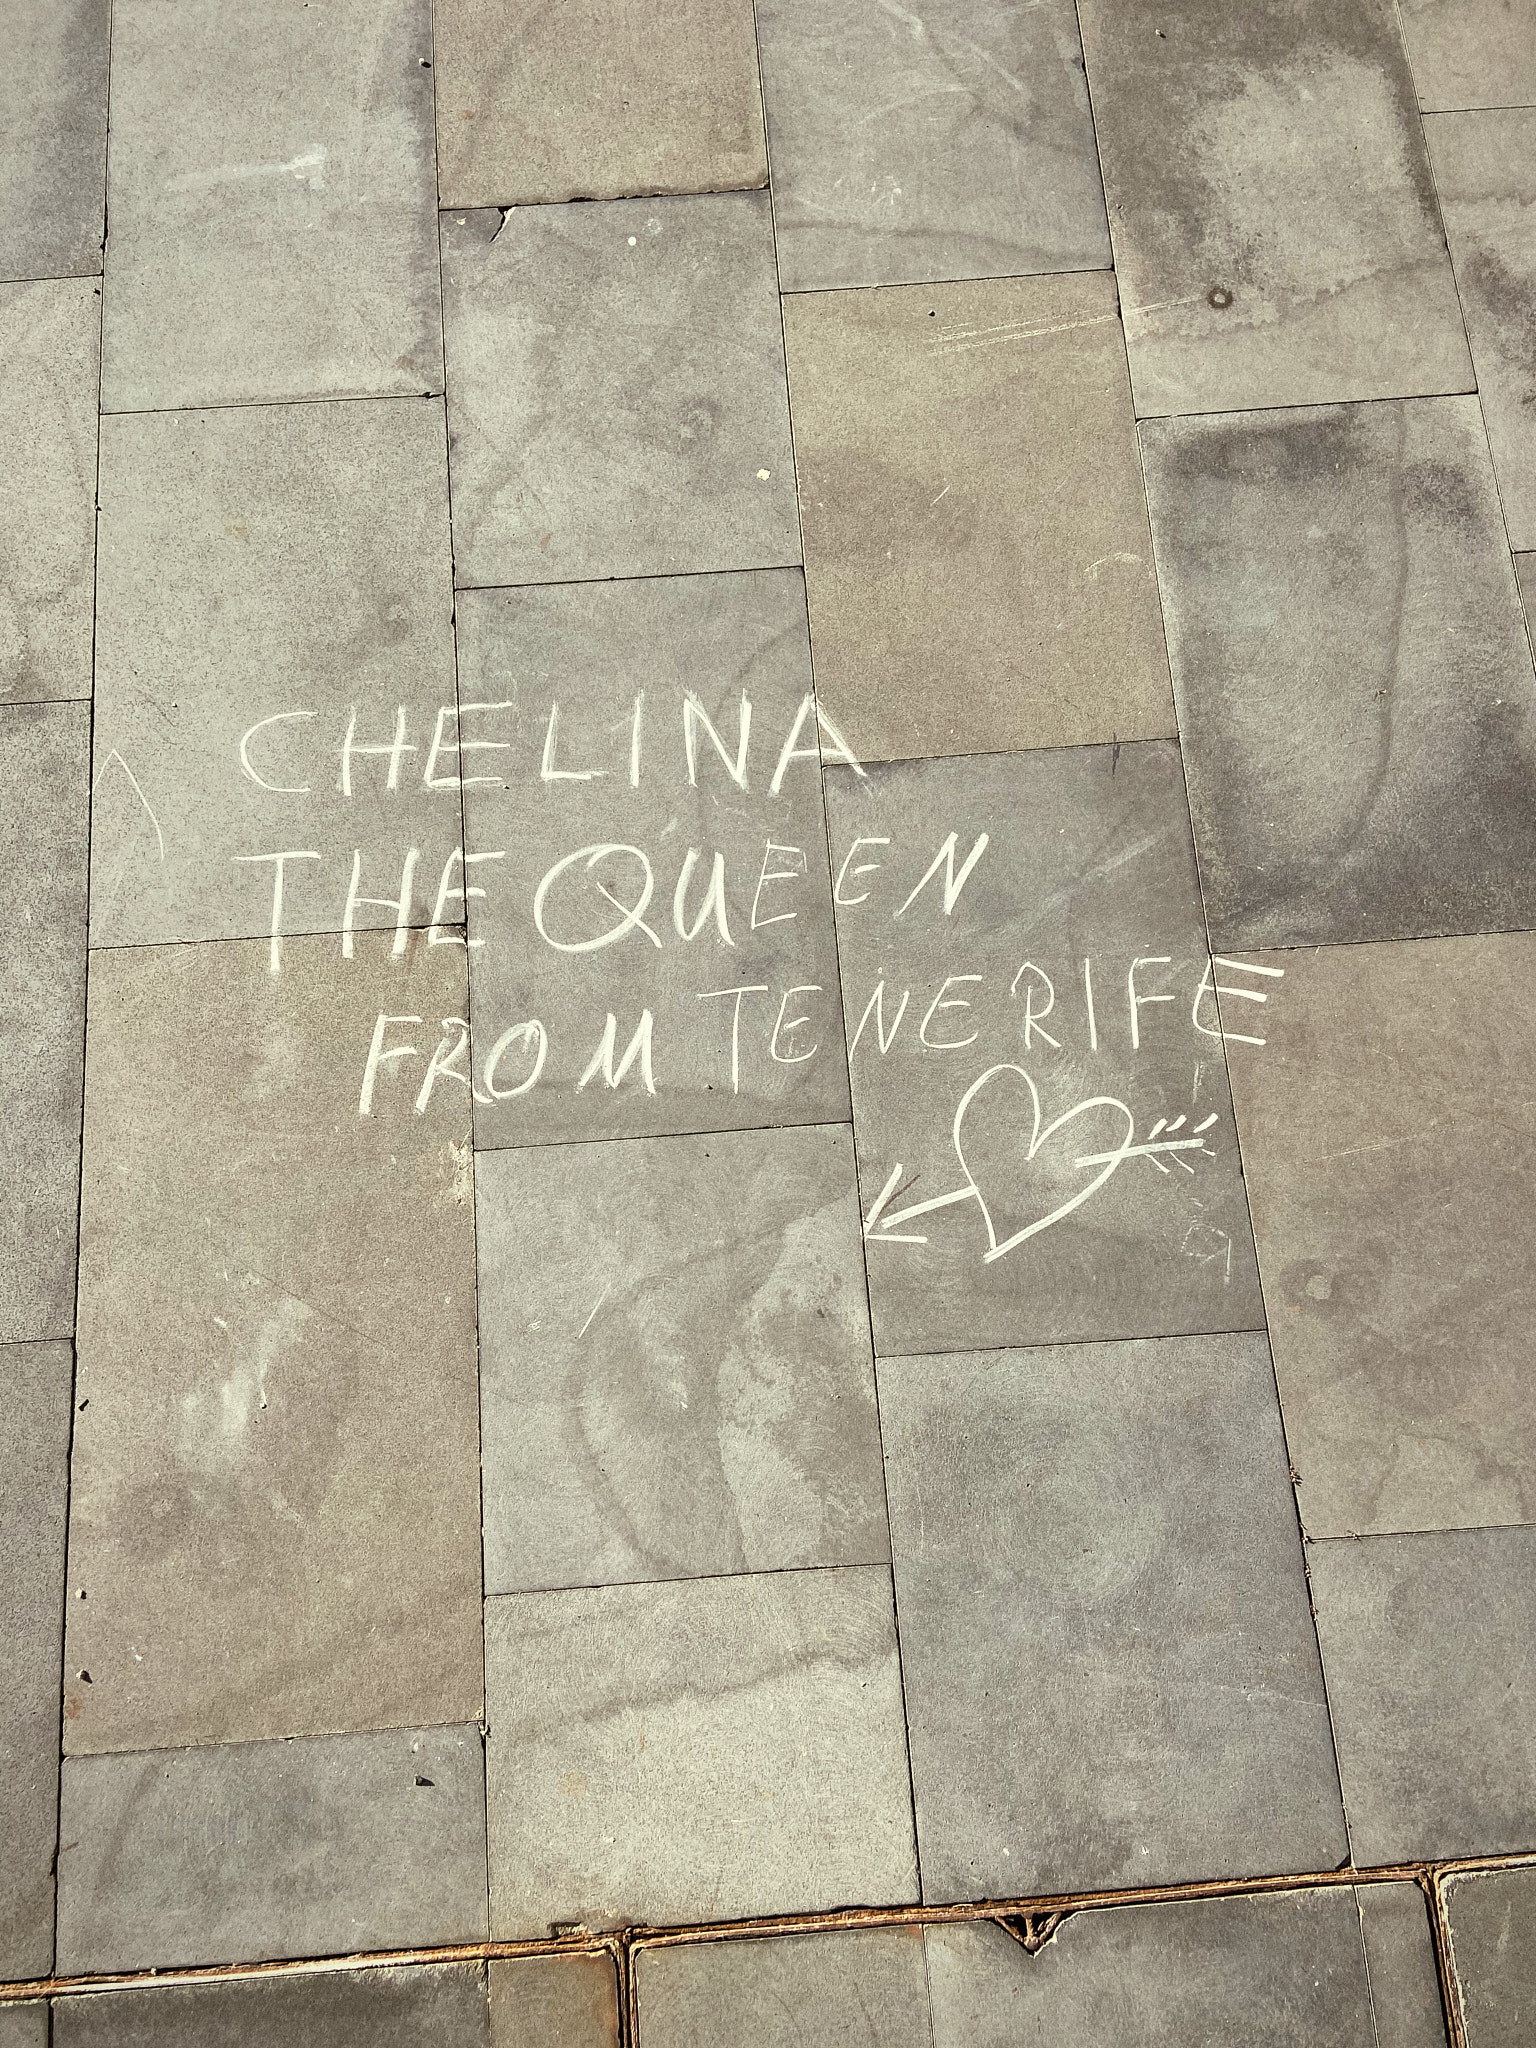 CHELINA
THE QUEEN
FROM TENERIFE